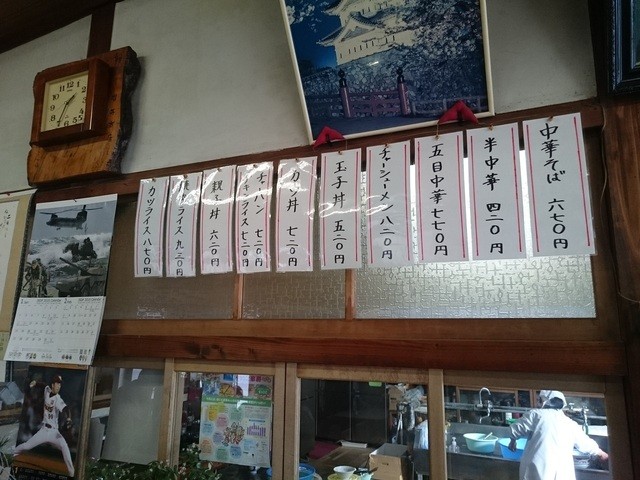 中華そば 六七〇円
半中華 四二〇円
五目中華 七七〇円
チャーシーメン 八二〇円
玉子丼 五二〇円
カツ丼 七二〇円
チャハン 七二〇円
チキンライス 七二〇円
親子丼 六二〇円
ライス 九二〇円
カツライス 八七〇円